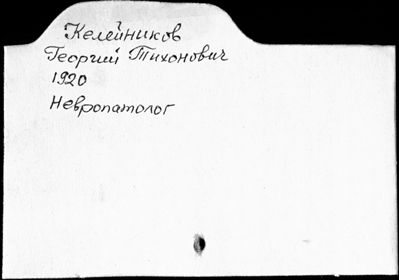 Келейников
Георгий Тихонович
1920
Невропатолог